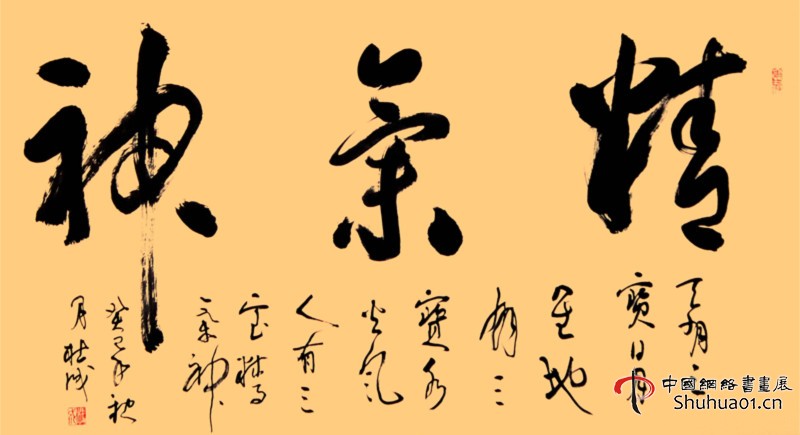 精氣神
天有三
寶日月
星地
有三
寶水
火風
人有三
宝精与
氣神
癸巳年秋
月
中國網絡書畫展
Shuhua01.cn